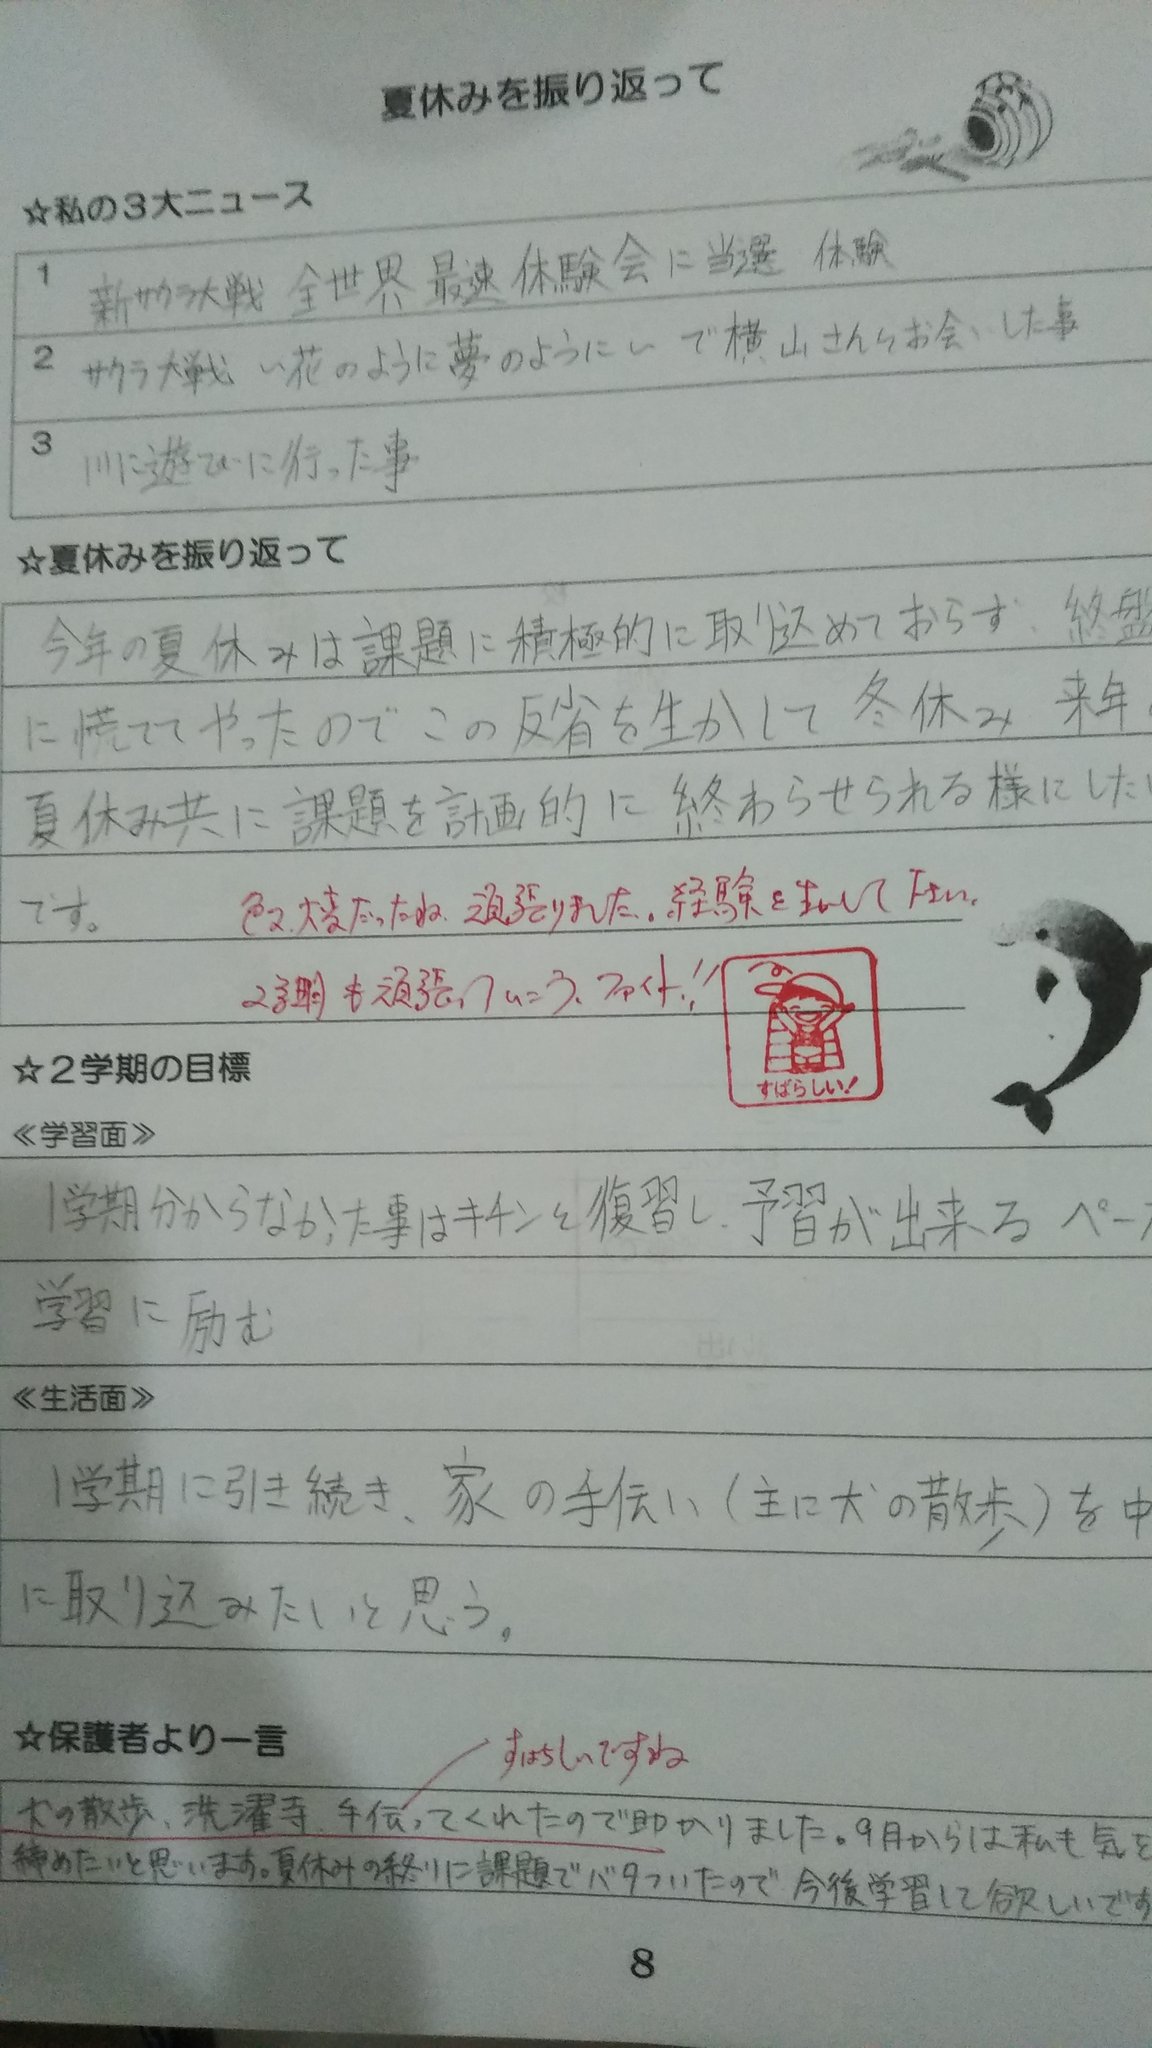 夏休みを振り返って
☆私の3大ニュース
1 新サクラ大戦 全世界 最速 体験会に当選 体験
2 サクラ大戦 〃花のように夢のように〃 で横山さんとお会いした事
3 川に遊びに行った事
☆夏休みを振り返って
今年の夏休みは課題に積極的に取り込めておらず、終盤
に慌ててやったのでこの反省を生かして 冬休み 来年
夏休み共に課題を計画的に 終わらせられる様にしたい
です。
色々大変だったね。頑張りました。経験を生かして下さい。
2学期も頑張っていこう。ファイト!!
すばらしい!
☆2学期の目標
≪学習面≫
1学期分からなかった事はキチンと復習し、予習が出来るペース
学習に励む
≪生活面≫
1学期に引き続き、家の手伝い(主に犬の散歩)を中
に取り込みたいと思う。
☆保護者より一言
すばらしいですね
犬の散歩、洗濯等、手伝ってくれたので助かりました。9月からは私も気を
締めたいと思います。夏休みの終りに課題でバタついたので 今後学習して欲しいです
8